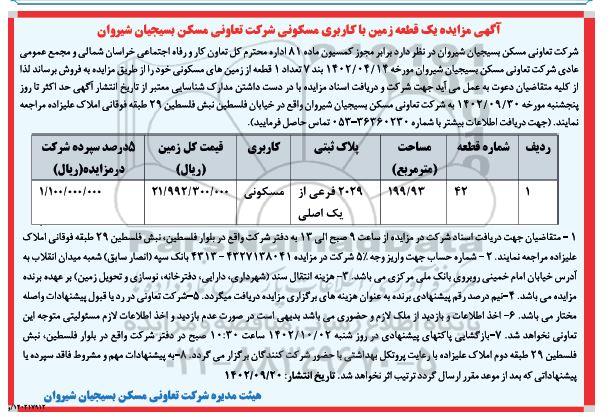 آگهی مزایده یک قطعه زمین با کاربری مسکونی شرکت تعاونی مسکن بسیجیان شیروان
شرکت تعاونی مسکن بسیجیان شیروان در نظر دارد برابر مجوز کمسیون ماده ۸۱ اداره محترم کل تعاون کار و رفاه اجتماعی خراسان شمالی و مجمع عمومی
عادی شرکت تعاونی مسکن بسیجیان شیروان مورخه ۱۴۰۲/۰۴/۱۴ بند ۷ تعداد ۱ قطعه از زمین های مسکونی خود را از طریق مزایده به فروش برساند لذا
از کلیه متقاضیان دعوت به عمل می آید جهت شرکت و دریافت اسناد مزایده با در دست داشتن مدارک شناسایی معتبر از تاریخ انتشار آگهی حد اکثر تا روز
پنجشنبه مورخه ۱۴۰۲/۰۹/۳۰ به شرکت تعاونی مسکن بسیجیان شیروان واقع در خیابان فلسطین نبش فلسطین ۲۹ طبقه فوقانی املاک علیزاده مراجعه
نمایند. (جهت دریافت اطلاعات بیشتر با شماره ۳۶۲۶۰۲۳۰-۰۵۳ تماس حاصل فرمایید).
ردیف شماره قطعه مساحت (مترمربع) پلاک ثبتی کاربری قیمت کل زمین (ریال) ۵درصد سپرده شرکت درمزایده(ریال)
۱ ۴۲ ۱۹۹/۹۳ ۲۰۲۹ فرعی از یک اصلی مسکونی ۲۱/۹۹۲/۳۰۰/۰۰۰ ۱/۱۰۰/۰۰۰/۰۰۰
۱ - متقاضیان جهت دریافت اسناد شرکت در مزایده از ساعت ۹ صبح الی ۱۳ به دفتر شرکت واقع در بلوار فلسطین، نبش فلسطین ۲۹ طبقه فوقانی املاک
علیزاده مراجعه نمایند. ۲ - شماره حساب جهت واریز وجه ۵٪ شرکت در مزایده ۴۳۲۷۱۳۸۰۴۱ - ۴۳۱۳ بانک سپه (انصار سابق) شعبه میدان انقلاب به
آدرس خیابان امام خمینی روبروی بانک ملی مرکزی می باشد. ۳- هزینه انتقال سند (شهرداری، دارایی، دفترخانه، نوسازی و تحویل زمین) بر عهده برنده
مزایده می باشد. ۴-نیم درصد رقم پیشنهادی برنده به عنوان هزینه های برگزاری مزایده دریافت میگردد. ۵-شرکت تعاونی در رد یا قبول پیشنهادات واصله
مختار می باشد. ۶- اخذ اطلاعات و بازدید از ملک لازم و حضوری می باشد بدیهی است در صورت عدم بازدید و اخذ اطلاعات لازم مسئولیتی متوجه این
تعاونی نخواهد شد. ۷-بازگشایی پاکتهای پیشنهادی در روز شنبه ۱۴۰۲/۱۰/۰۲ ساعت ۱۰:۳۰ صبح در دفتر شرکت واقع در بلوار فلسطین، نبش
فلسطین ۲۹ طبقه دوم املاک علیزاده با رعایت پروتکل بهداشتی با حضور شرکت کنندگان برگزار می گردد. ۸-به پیشنهادات مهم و مشروط فاقد سپرده یا
پیشنهاداتی که بعد از موعد مقرر ارسال گردد ترتیب اثر نخواهد شد. تاریخ انتشار: ۱۴۰۲/۰۹/۲۰
هیئت مدیره شرکت تعاونی مسکن بسیجیان شیروان